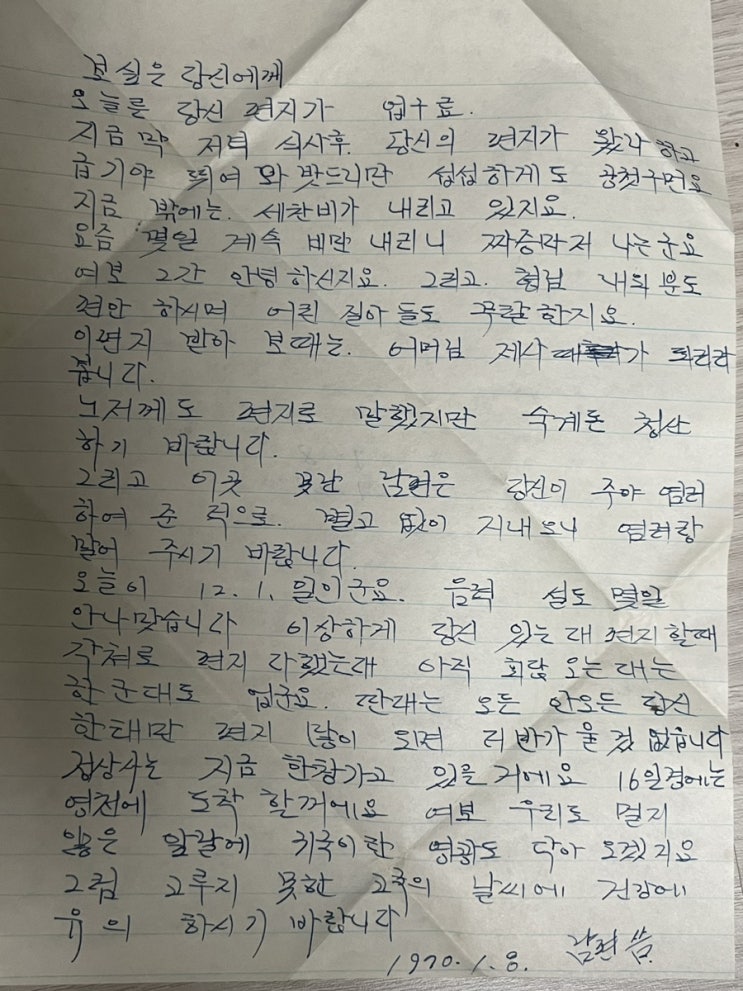 보실은 당신에께
오늘를 당신 편지가 업구료.
지금 막 저녁 식사후. 당신의 편지가 왔다 하고
급기야 뛰여 와 밧드리만 섭섭하게도 공첫구먼요
지금 밖에는. 세찬비가 내리고 있지요.
요즘 몇일 계속 비만 내리니 짜증마저 나는군요
여보 그간 안녕 하신지요. 그리고. 형님 내외 분도
편안 하시며 어린 질아 들도 무탈 한지요.
이편지 받아 보때는. 어머님 제사 가 되리라
줍니다.
노저께도 편지로 말했지만 숙계돈 청산
하기 바랍니다.
그리고 이곳 못난 남편은 당신이 주야 염려
하여 준 덕으로. 별고 없이 지내오니 염려랑
말어 주시기 바랍니다.
오늘이 12.1. 일이군요. 음력 설도 몇일
안나맛습니다 이상하게 당신 있는대 편지할때
각처로 편지 다했는대 아직 회답 오는대는
한군대도 업군요. 딴대는 오든 안오든 당신
한태만 편지 많이 오면 더 반가울것 없습니다
정상사는 지금 한창가고 있을 거에요 16일경에는
영천에 도착 할꺼에요 여보 우리도 멀지
않은 날갈에 귀국이란 영광도 닥아 오겠지요
그럼 고루지 못한 고국의 날씨에 건강에
유의 하시기 바랍니다
1970.1.8. 남편 씀.